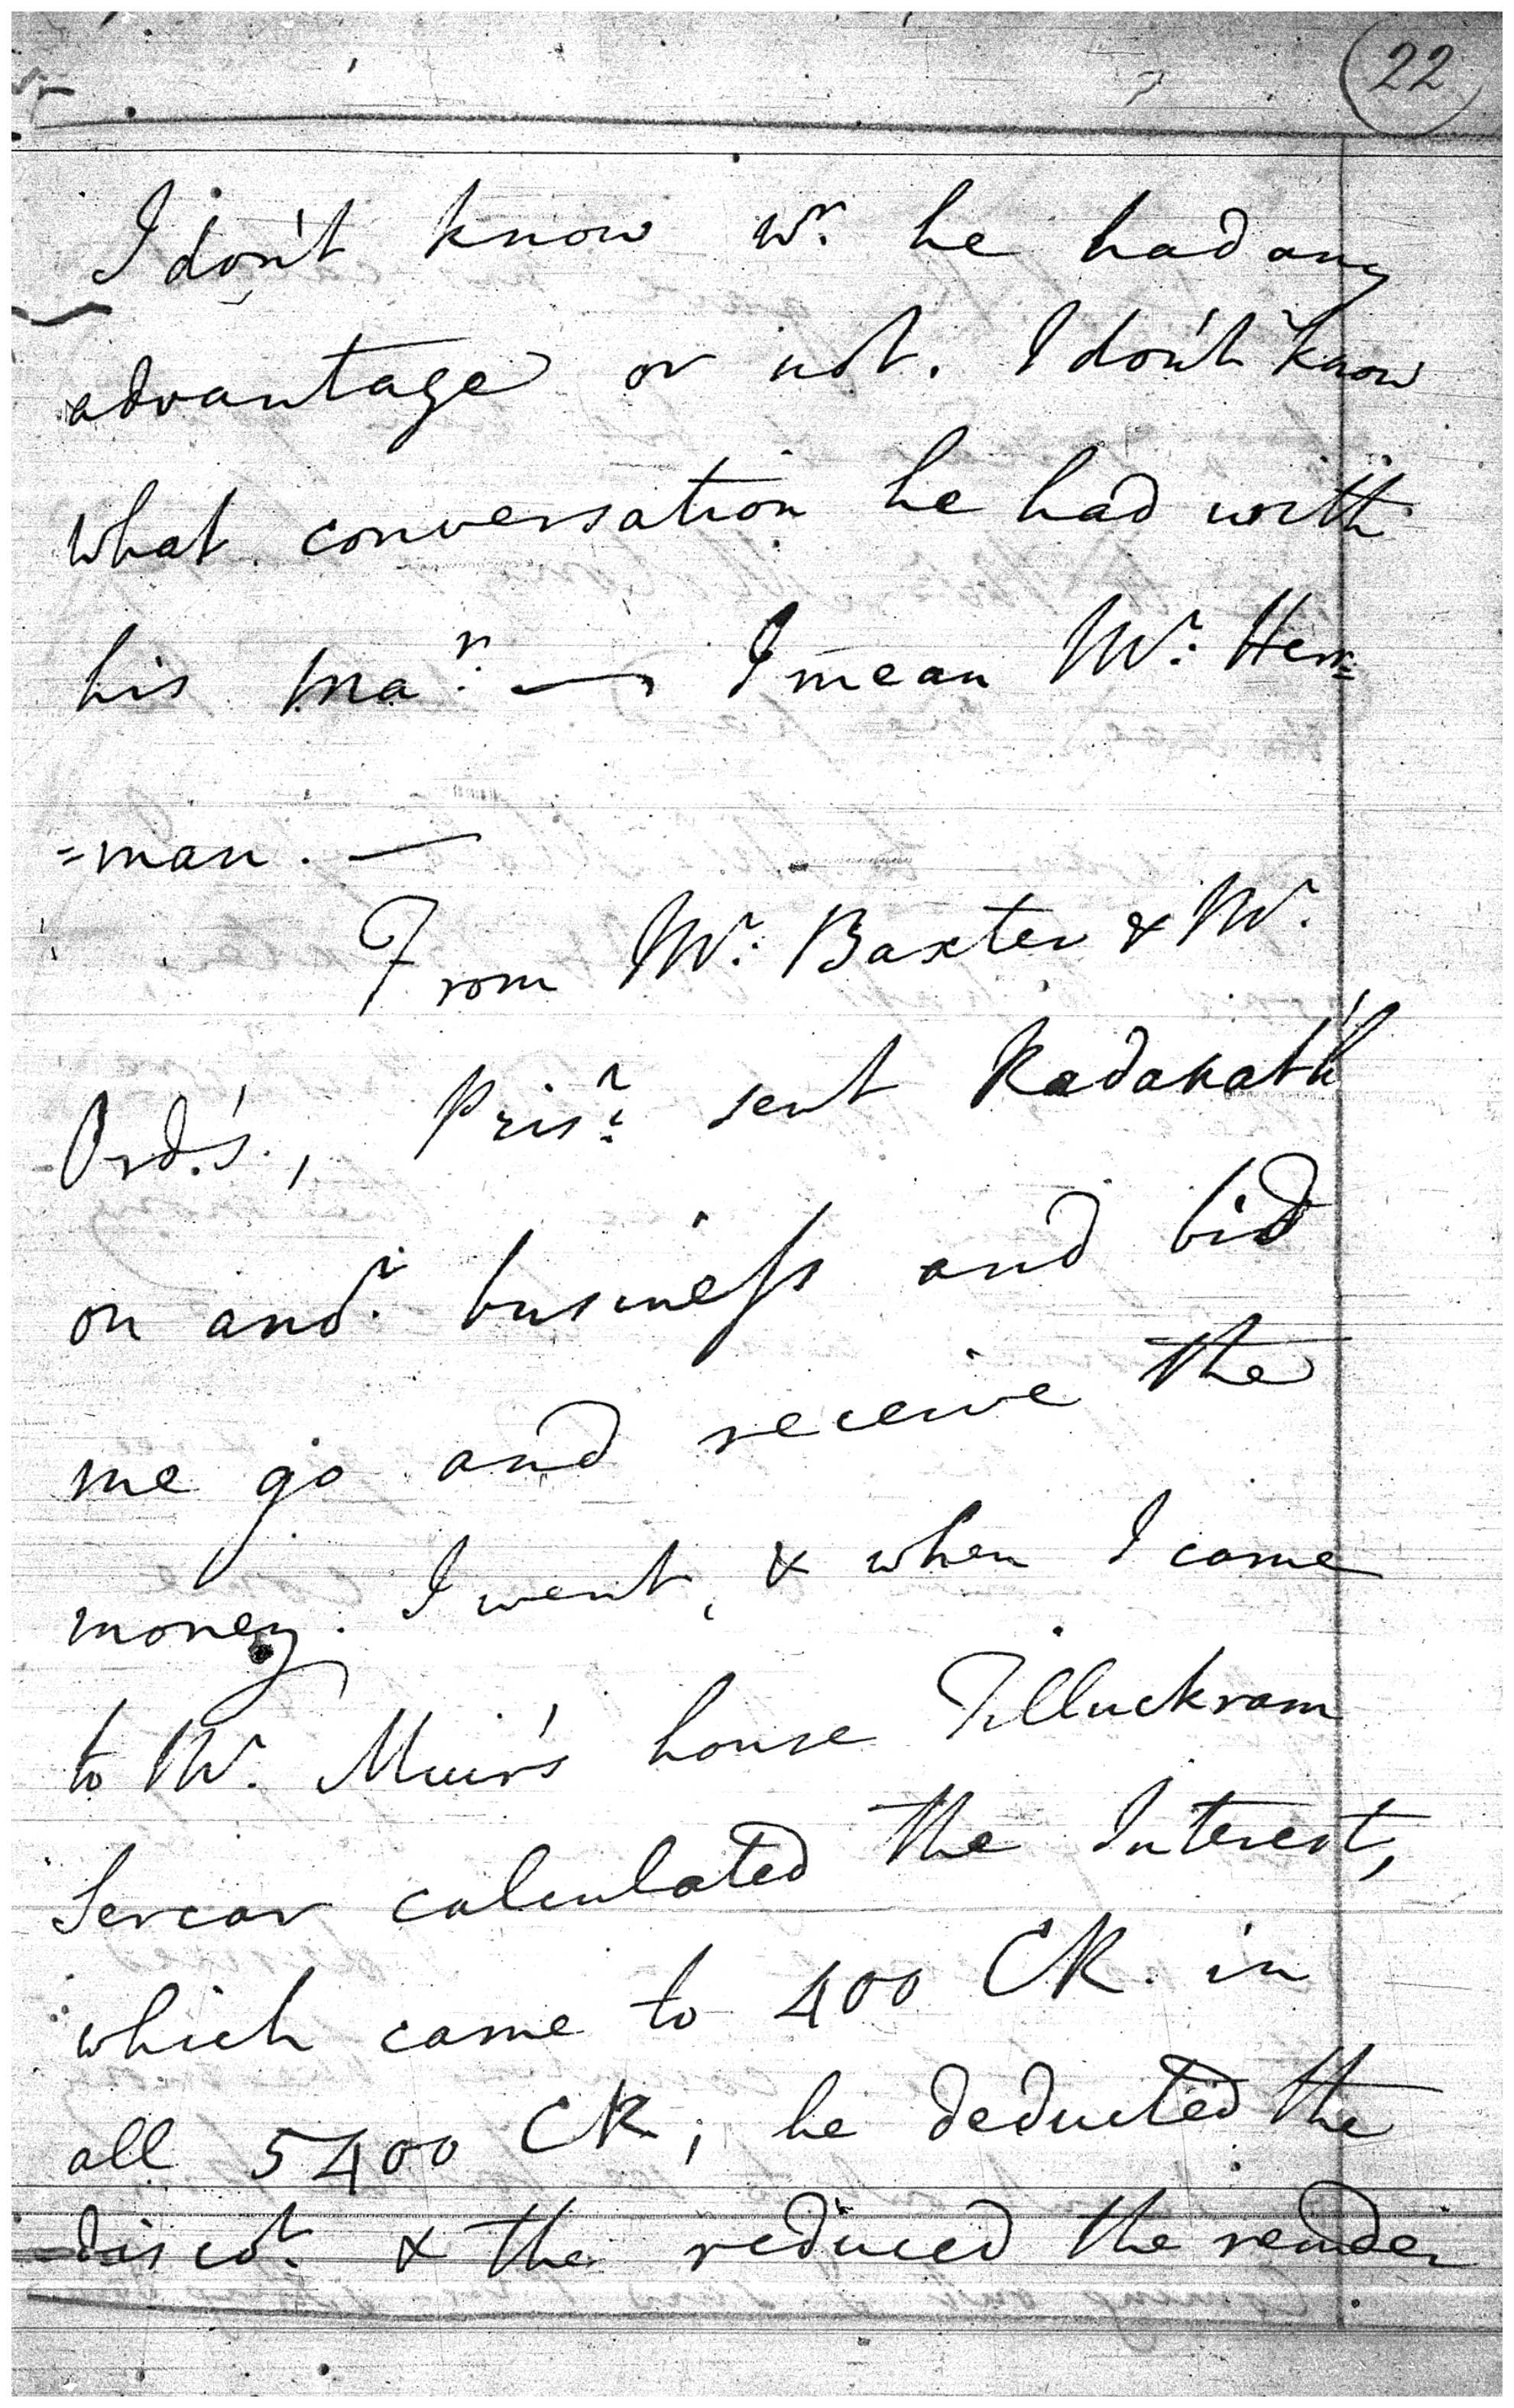 22
I don't know wr. he had any
advantage or not. I don't know
what conversation he had with
his Mar. — I mean Mr. Her=
=man. —
From Mr. Baxter & Mr.
Ord's., Prisr. sent Radanath
on anor. business and bid
me go and receive the
money. I went, & when I came
to Mr. Muir's house Tilluckram
Sercar calculated the Interest,
which came to 400 CR. in
all 5400 CR; he deducted the
discot. & the reduced the remder